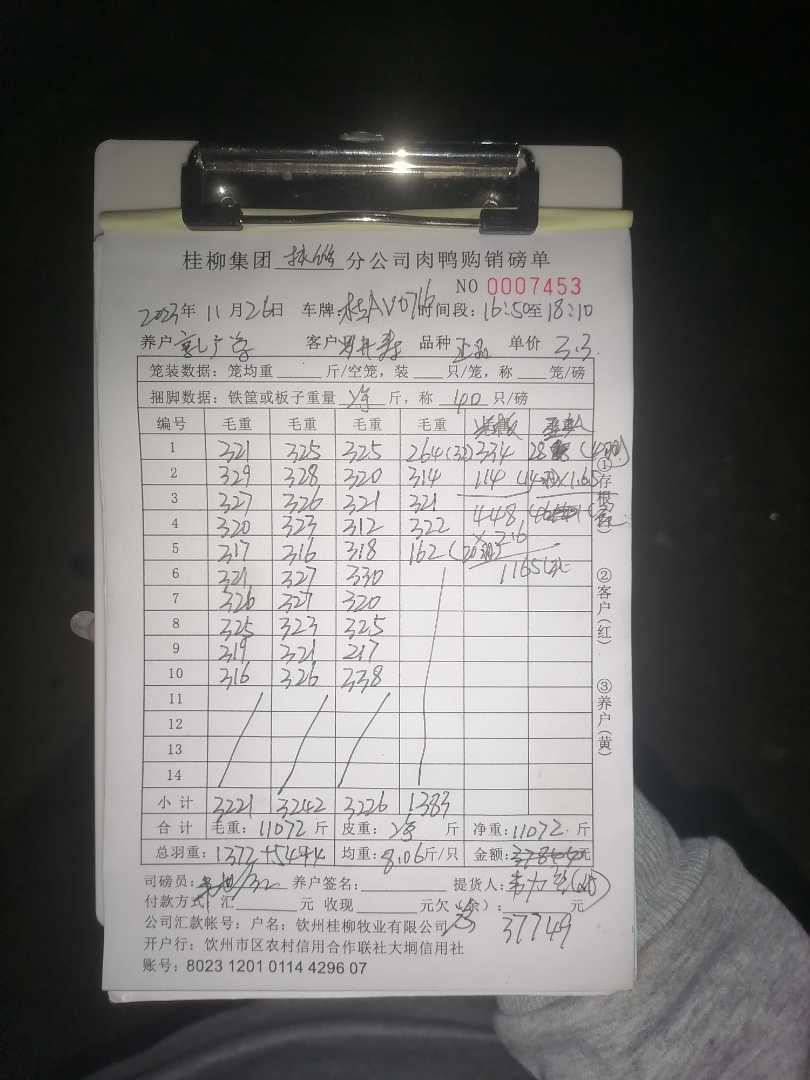 桂柳集团 分公司肉鸭购销磅单
NO 0007453
2023年 11月26日 车牌:桂AV0766 时间段:16:50至18:10
养户 客户 品种 单价 3.3
笼装数据:笼均重 斤/空笼,装 只/笼,称 笼/磅
捆脚数据:铁筐或板子重量 净 斤,称 40 只/磅
编号 毛重 毛重 毛重 毛重
1 321 325 325 264(32) 334
2 329 328 320 314 114
3 327 326 321 321
4 320 323 312 322 448
5 317 316 318 162 × 2.6
6 321 327 330 1165
7 326 327 320
8 325 323 325
9 319 321 217
10 316 326 338
11
12
13
14
小计 3221 3242 3226 1383
合计 毛重:11072 斤 皮重:净 斤 净重:11072 斤
总羽重:1372 均重:8.06斤/只 金额: 元
司磅员: 养户签名: 提货人:
付款方式:汇 元 收现 元欠(余): 元
37749
公司汇款帐号:户名:钦州桂柳牧业有限公司
开户行:钦州市区农村信用合作联社大垌信用社
账号:8023 1201 0114 4296 07
①存根(白)
②客户(红)
③养户(黄)